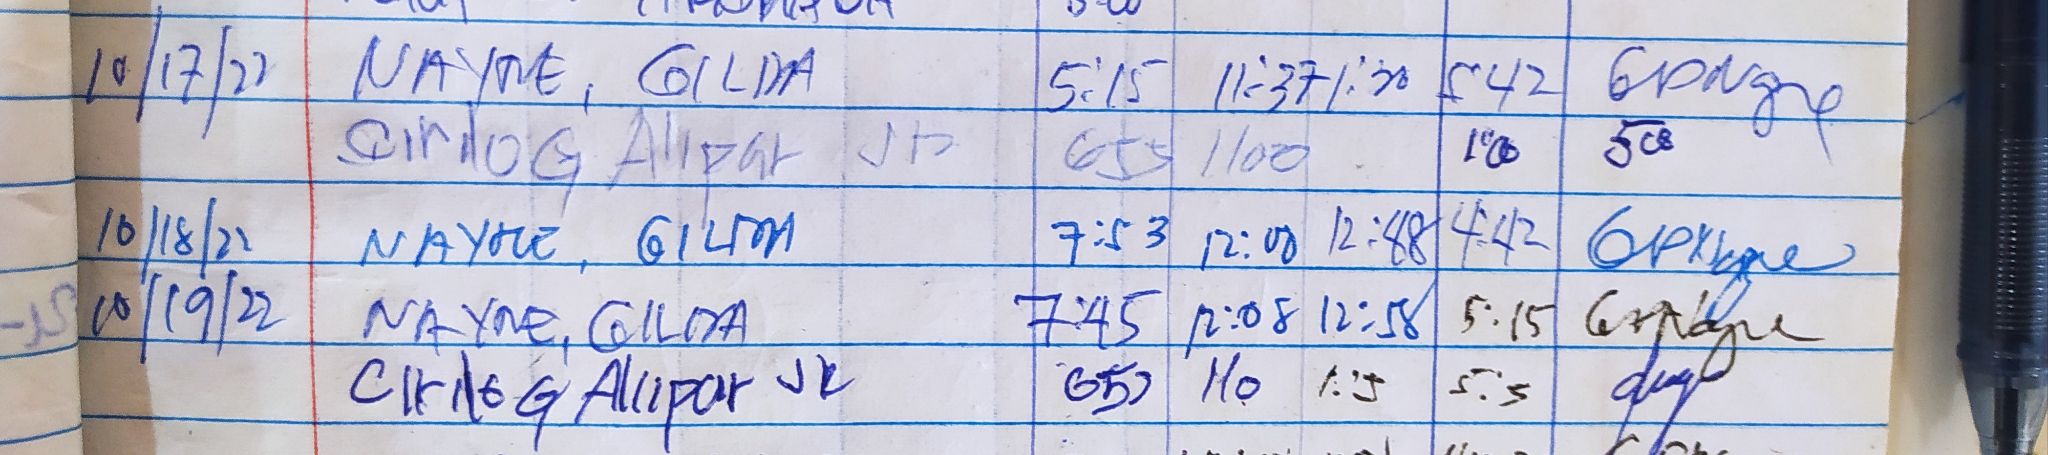 10/17/22 NAYRE, GILDA 5:15 11:37 1:30 5:42
Cirilo G Alipar Jr 655 1100 1:00 500
10/18/22 NAYRE, GILDA 7:53 12:00 12:48 4:42
10/19/22 NAYRE, GILDA 7:45 12:08 12:58 5:15
Cirilo G Alipar Jr 655 110